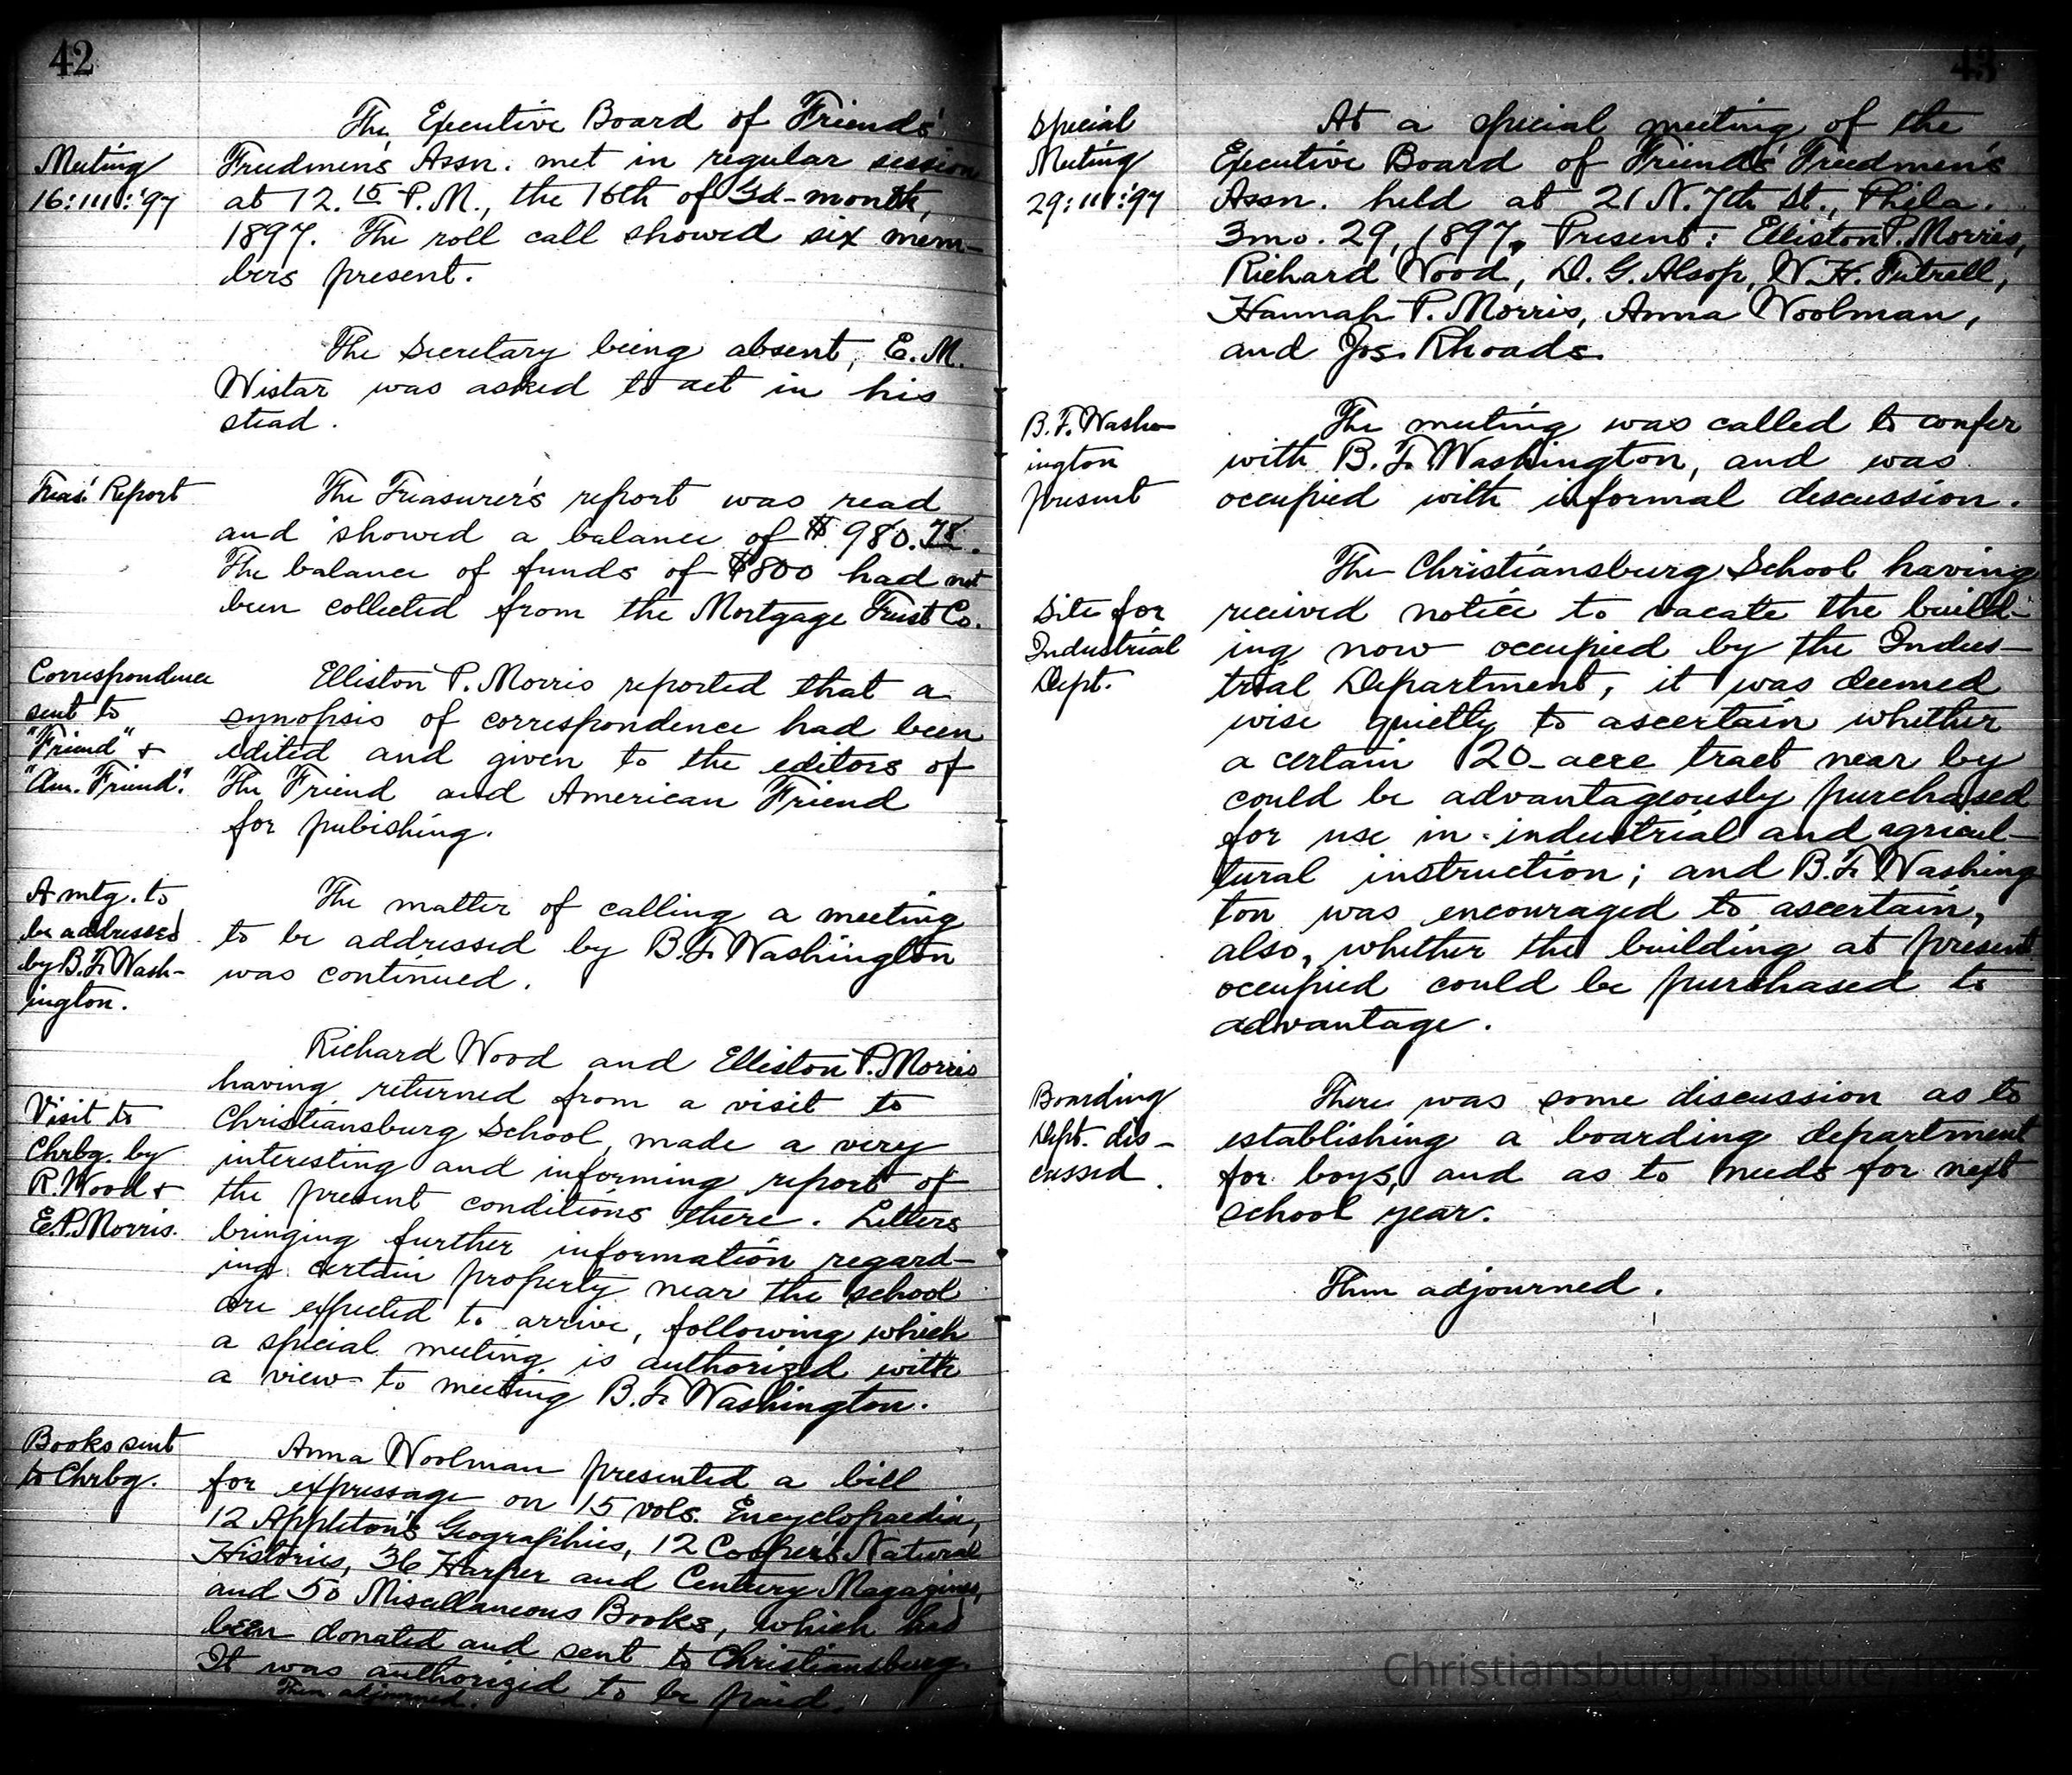 42
The Executive Board of Friends'
Meeting
16:III:'97
Freedmen's Assn. met in regular session
at 12.15 P.M., the 16th of 3d-month,
1897. The roll call showed six mem-
bers present.
The Secretary being absent, E. M.
Wistar was asked to act in his
stead.
Treas.' Report
The Treasurer's report was read
and showed a balance of $980.78.
The balance of funds of $800 had not
been collected from the Mortgage Trust Co.
Correspondence
sent to
"Friend" +
"Am. Friend".
Elliston P. Morris reported that a
synopsis of correspondence had been
edited and given to the editors of
The Friend and American Friend
for pubishing.
A mtg. to
be addressed
by B.F. Wash-
ington.
The matter of calling a meeting
to be addressed by B.F. Washington
was continued.
Visit to
Chrbg. by
R. Wood +
E.P. Morris.
Richard Wood and Elliston P. Morris
having returned from a visit to
Christiansburg School, made a very
interesting and informing report of
the present conditions there. Letters
bringing further information regard-
ing certain property near the school
are expected to arrive, following which
a special meeting is authorized with
a view to meeting B.F. Washington.
Books sent
to Chrbg.
Anna Woolman presented a bill
for expressage on 15 vols. Encyclopaedia,
12 Appleton's Geographies, 12 Cooper's Natural
Histories, 36 Harper and Century Magazines,
and 50 Miscellaneous Books, which had
been donated and sent to Christiansburg.
It was authorized to be paid.
Then adjourned.
43
Special
Meeting
29:III:'97
At a special meeting of the
Executive Board of Friends' Freedmen's
Assn. held at 21 N. 7th St., Phila.
3mo. 29, 1897. Present: Elliston P. Morris,
Richard Wood, D. G. Alsop, W. H. Futrell,
Hannah P. Morris, Anna Woolman,
and Jos. Rhoads.
B.F. Wash-
ington
present
The meeting was called to confer
with B. F. Washington, and was
occupied with informal discussion.
Site for
Industrial
Dept.
The Christiansburg School having
received notice to vacate the build-
ing now occupied by the Indus-
trial Department, it was deemed
wise quietly to ascertain whether
a certain 20-acre tract near by
could be advantageously purchased
for use in industrial and agricul-
tural instruction; and B.F. Washing
ton was encouraged to ascertain,
also, whether the building at present
occupied could be purchased to
advantage.
Boarding
Dept. dis-
cussed.
There was some discussion as to
establishing a boarding department
for boys, and as to needs for next
school year.
Then adjourned.
Christiansburg Institute,